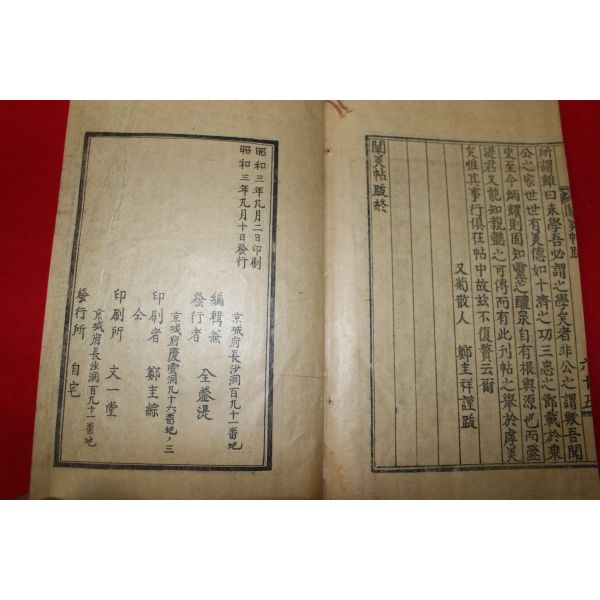 所謂雖曰未學吾必謂之學矣者非公之謂歟吾聞
公之家世世有美德如十濟之功三忠之節載於乘
史至今炳耀則固知靈芝之醴泉自有根與源也而鎣
湜君又能知親懿之可傳而有此刊帖之擧於虖美
矣惟其事行俱在帖中故玆不復贅云爾
又菊散人 鄭圭祥謹跋
闡美帖跋終
昭和三年九月二日印刷
昭和三年九月十日發行
京城府長沙洞百九十一番地
編輯兼
發行者 全鎣湜
京城府慶雲洞九十六番地ノ三
印刷者 鄭圭綜
仝
印刷所 文一堂
京城府長沙洞百九十一番地
發行所 自宅